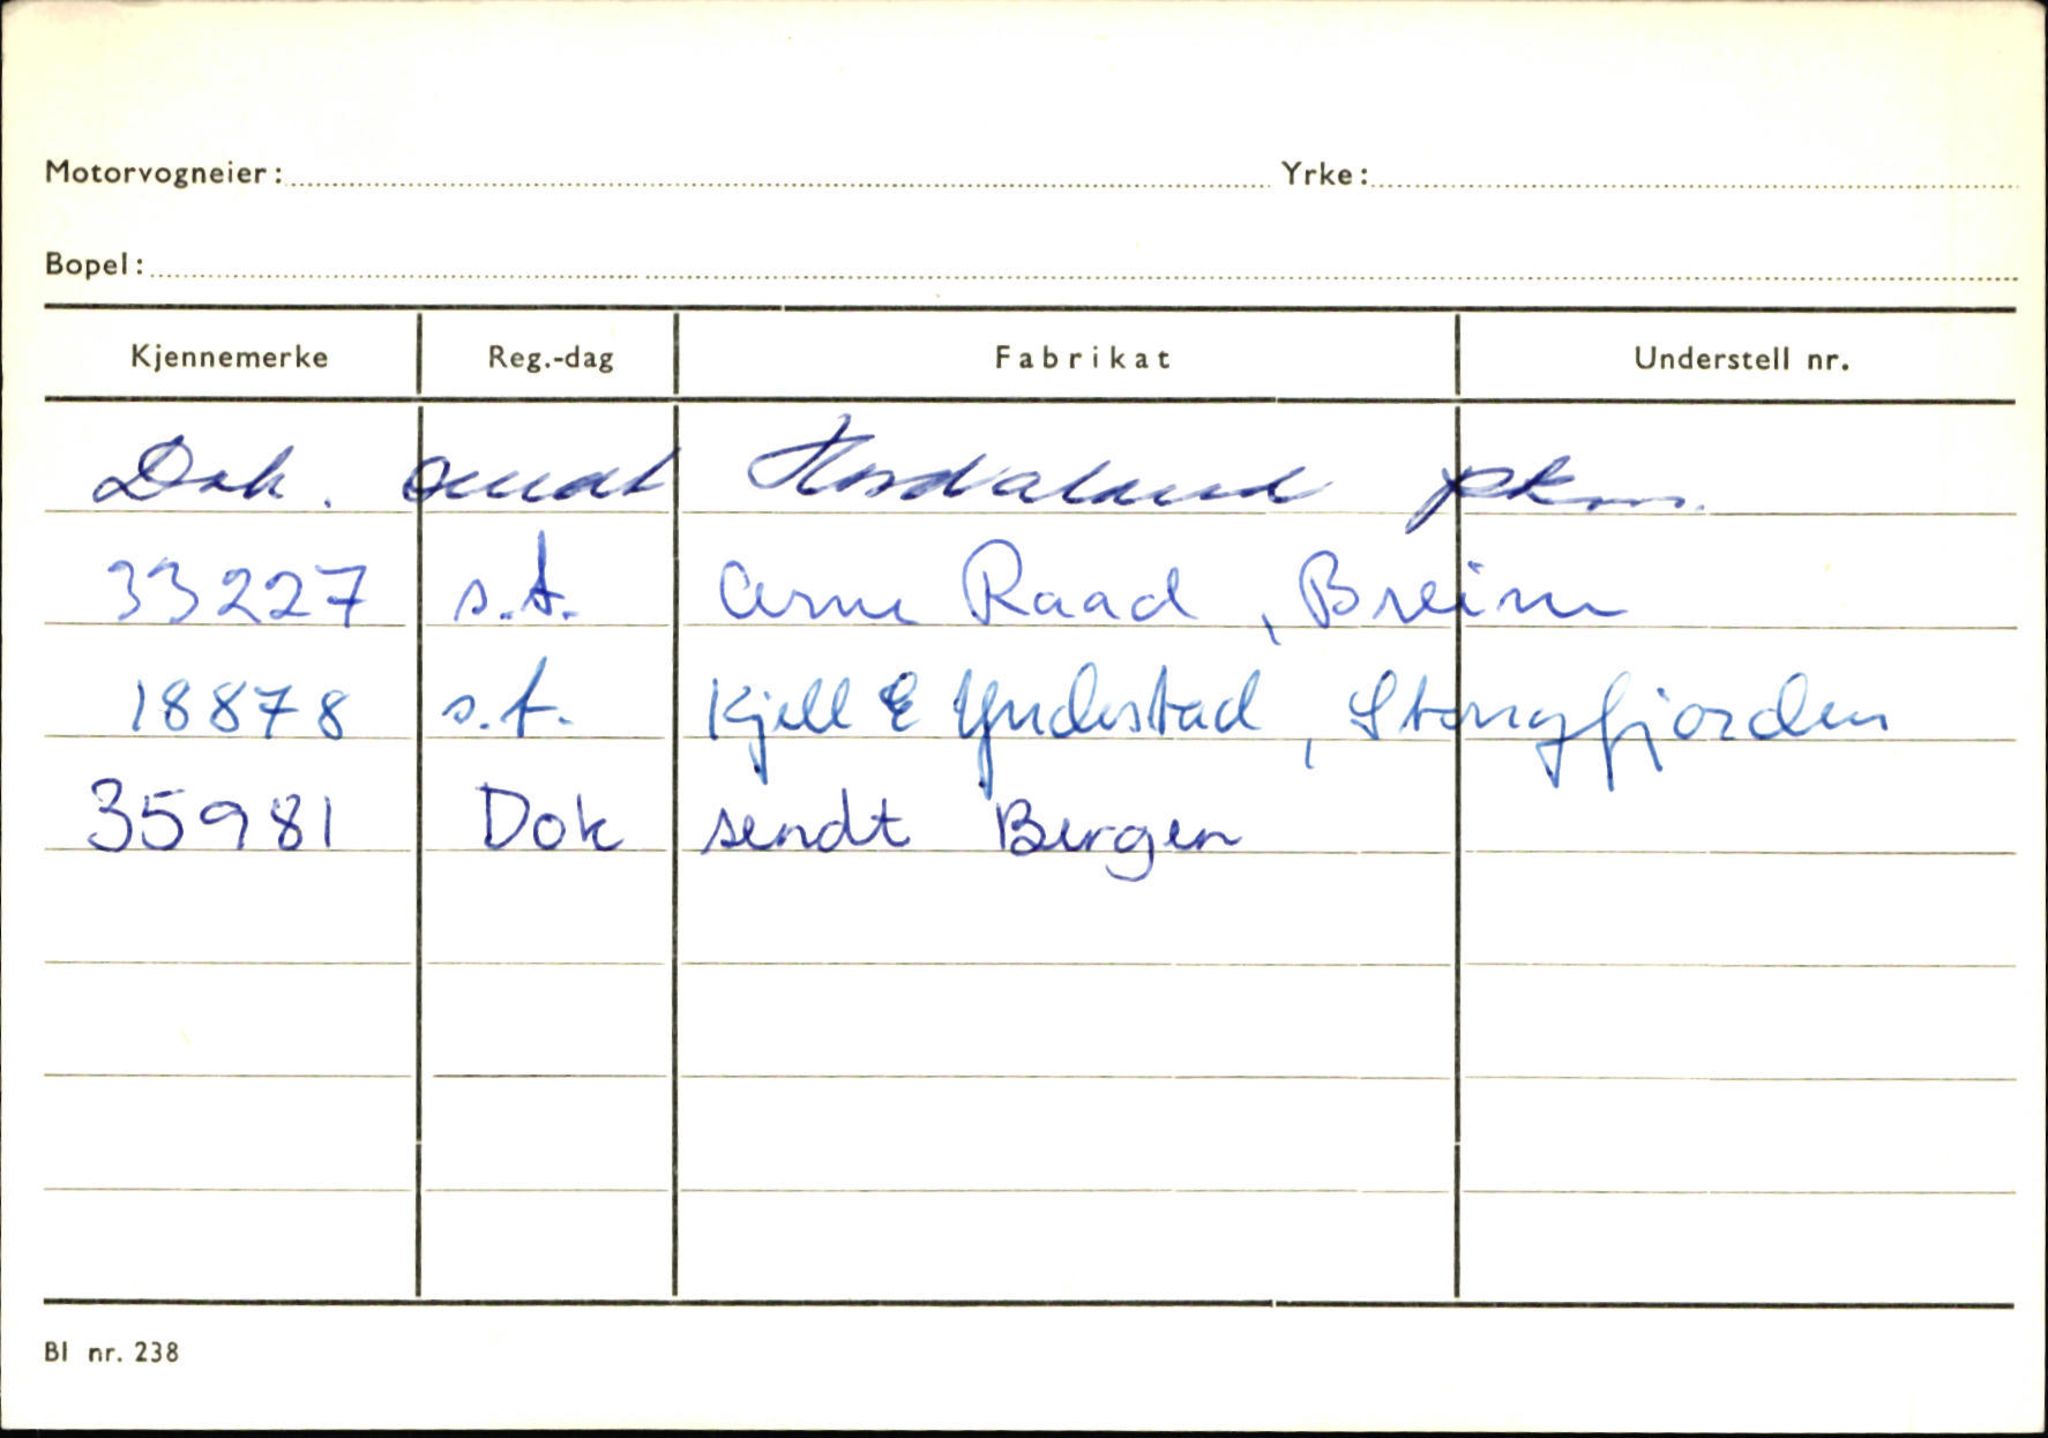 Motorvogneier: Yrke:
Bopel:
Kjennemerke Reg.-dag Fabrikat Understell nr.
Dok. sendt Hordaland pkm.
33227 s.t. Arne Raad, Breim
18878 s.t. Kjell E Yndestad, Stongfjorden
35981 Dok sendt Bergen
Bl nr. 238